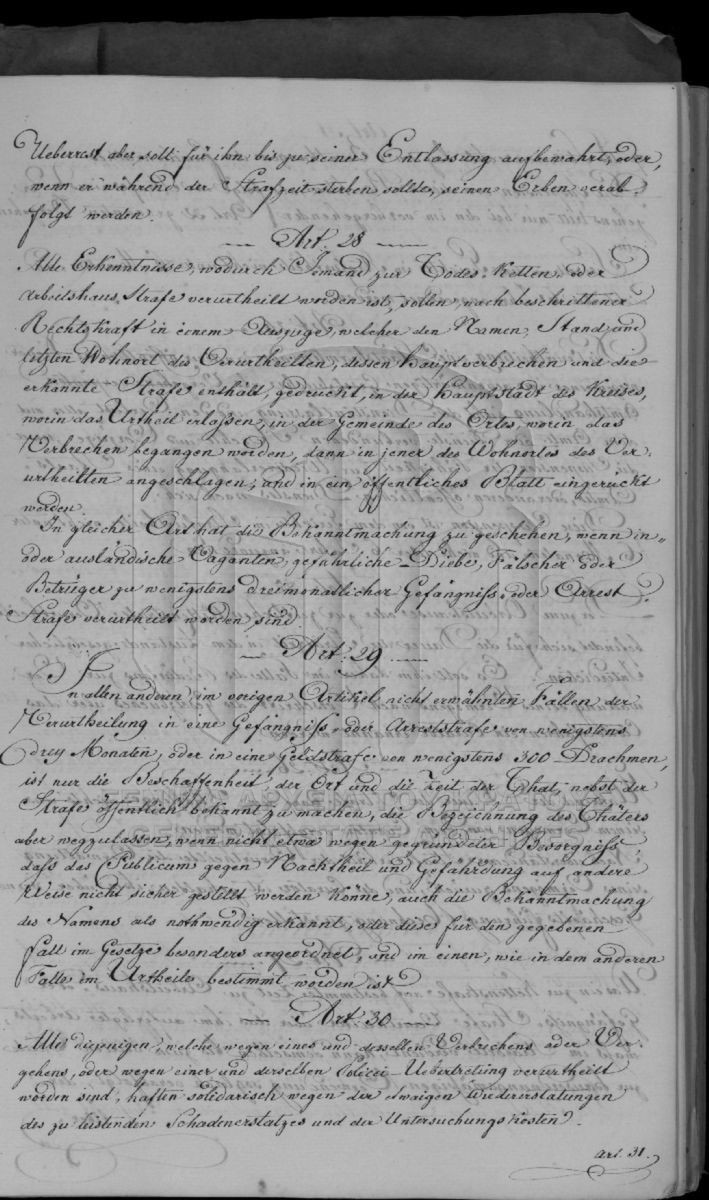 Ueberrest aber soll für ihn bis zu seiner Entlassung aufbewahrt, oder,
wenn er während der Strafzeit sterben sollte, seinen Erben verab-
folgt werden.
Art. 28
Alle Erkenntnisse, wodurch Jemand zur Todes- Ketten- oder
Arbeitshaus Strafe verurtheilt worden ist, sollen nach beschrittener
Rechtskraft in einem Auszuge, welcher den Namen, Stand und
letzten Wohnort des Verurtheilten, dessen Hauptverbrechen und die
erkannte Strafe enthält, gedruckt, in der Hauptstadt des Kreises,
worin das Urtheil erlassen, in der Gemeinde des Ortes, worin das
Verbrechen begangen worden, dann in jener des Wohnortes des Ver-
urtheilten angeschlagen, und in ein öffentliches Blatt eingerückt
werden.
In gleicher Art hat die Bekanntmachung zu geschehen, wenn in-
oder ausländische Vaganten, gefährliche Diebe, Fälscher oder
Betrüger zu wenigstens dreimonatlicher Gefängniss- oder Arrest
Strafe verurtheilt worden sind
Art. 29
In allen anderen im vorigen Artikel nicht erwähnten Fällen der
Verurtheilung in eine Gefängniss- oder Arreststrafe von wenigstens
drey Monaten, oder in eine Geldstrafe von wenigstens 300 Drachmen,
ist nur die Beschaffenheit, der Ort und die Zeit der That, nebst der
Strafe öffentlich bekannt zu machen, die Bezeichnung des Thäters
aber wegzulassen, wenn nicht etwa wegen gegründeter Besorgniss
dass das Publicum gegen Nachtheil und Gefährdung auf andere
Weise nicht sicher gestellt werden könne, auch die Bekanntmachung
des Namens als nothwendig erkannt, oder diese für den gegebenen
Fall im Gesetze besonders angeordnet, und im einen, wie in dem anderen
Falle im Urtheile bestimmt worden ist
Art. 30
Alle diejenigen, welche wegen eines und desselben Verbrechens oder Ver-
gehens, oder wegen einer und derselben Polizei-Uebertretung verurtheilt
worden sind, haften solidarisch wegen der etwaigen Wiedererstatungen
des zu leistenden Schadenersatzes und der Untersuchungskosten.
Art. 31.